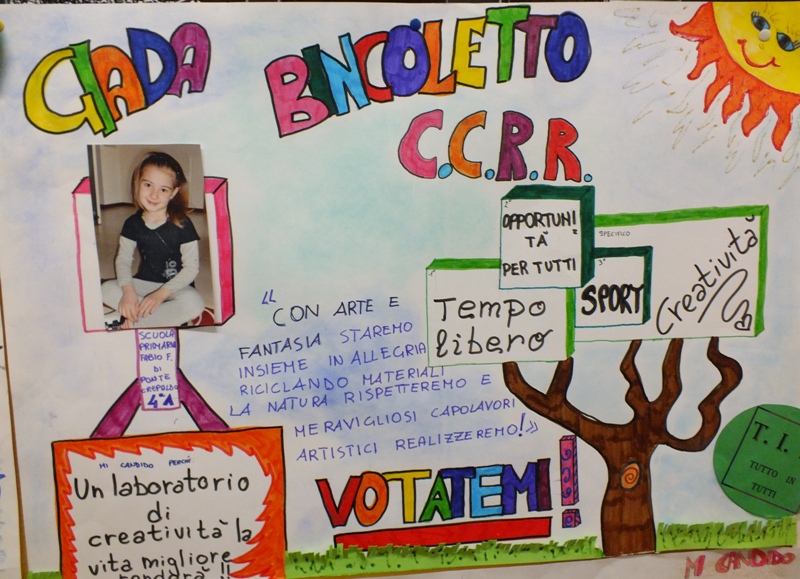 GIADA
BINCOLETTO
C.C.R.R.
2°
OPPORTUNI
TA
PER TUTTI
SPECIFICO
Creatività
3°
SPORT
1°
Tempo
libero
"CON ARTE E
FANTASIA STAREMO
INSIEME IN ALLEGRIA
RICICLANDO MATERIALI
LA NATURA RISPETTEREMO E
MERAVIGLIOSI CAPOLAVORI
ARTISTICI REALIZZEREMO!"
VOTATEMI!
SCUOLA
PRIMARIA
FABIO F.
DI
PONTE
CREPALDO
4ªA
MI CANDIDO PERCHÉ
Un laboratorio
di
creatività la
vita migliore
renderà!!
T. I.
TUTTO IN
TUTTI
MI CANDIDO